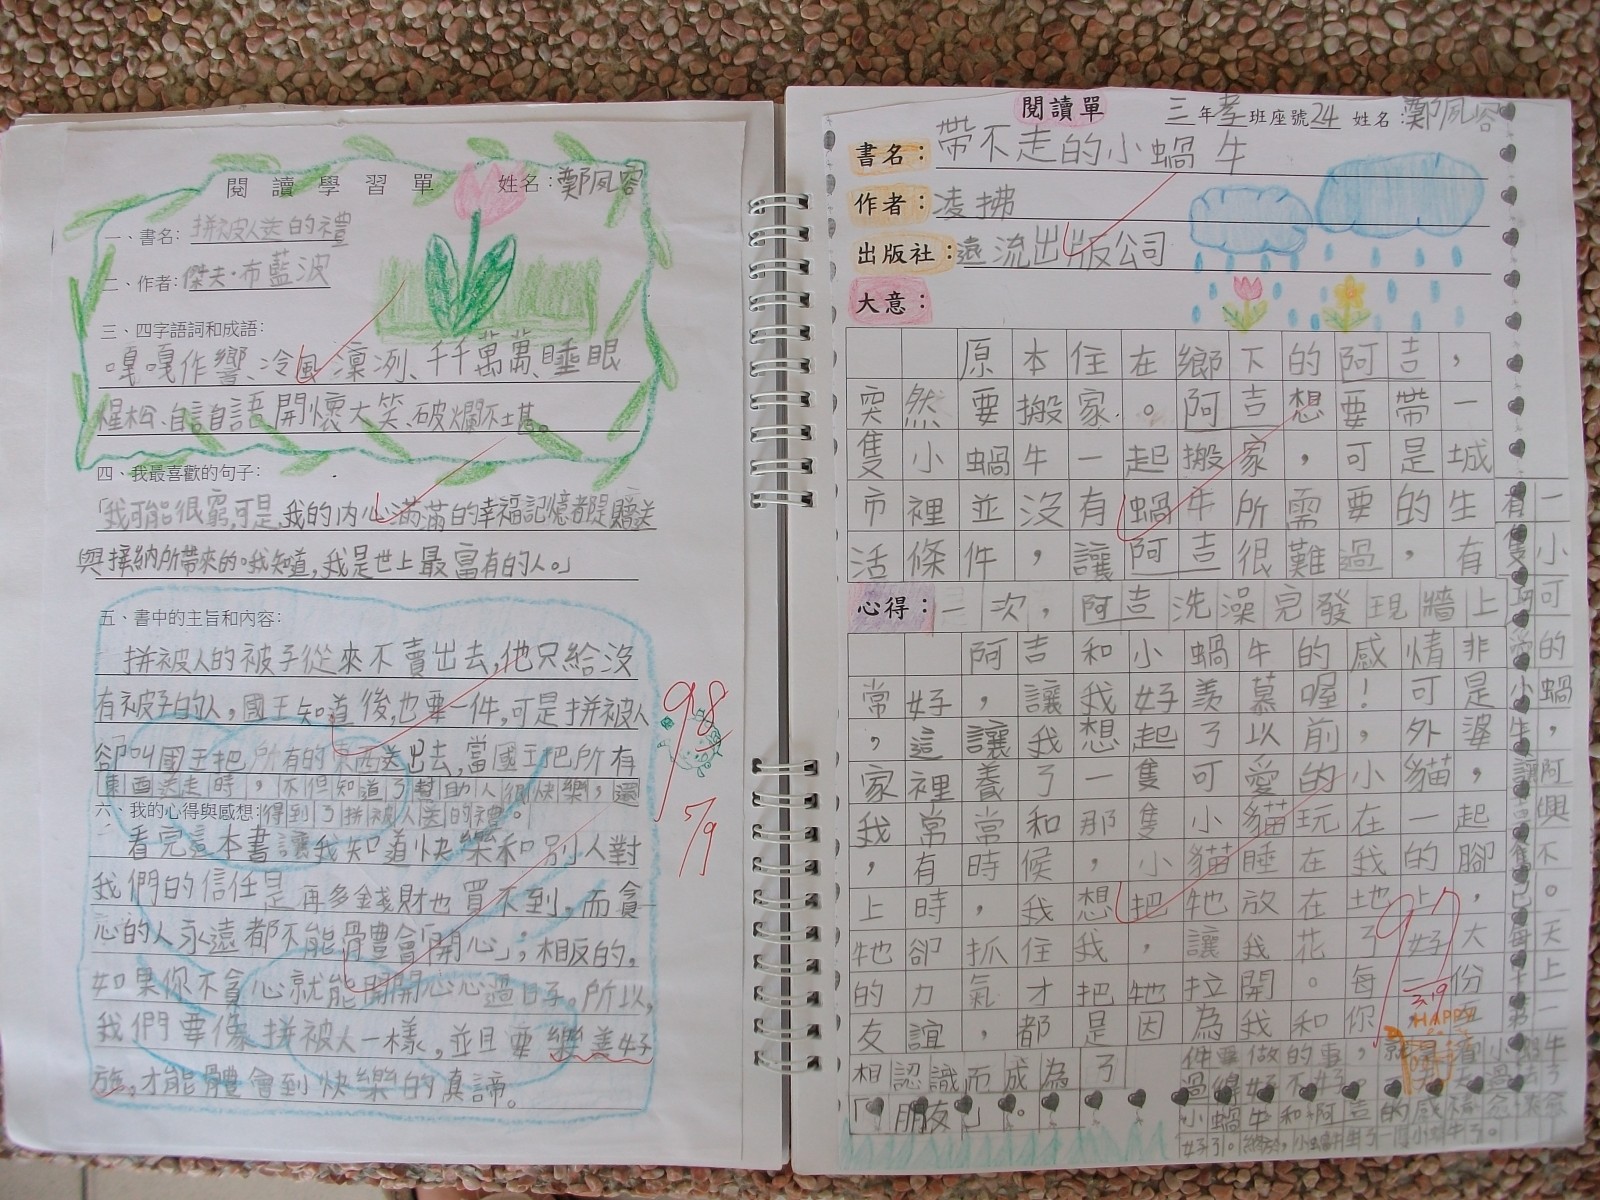 閱讀學習單 姓名：鄭夙容
一、書名：拼被人送的禮
二、作者：傑夫·布藍波
三、四字語詞和成語：
嘎嘎作響、冷風凜冽、千千萬萬、睡眼
惺松、自言自語、開懷大笑、破爛不堪。
四、我最喜歡的句子：
「我可能很窮，可是，我的內心滿滿的幸福記憶都是贈送
與接納所帶來的。我知道，我是世上最富有的人。」
五、書中的主旨和內容：
拼被人的被子從來不賣出去，他只給沒
有被子的人，國王知道後，也要一件，可是拼被人
卻叫國王把所有的東西送出去，當國王把所有
東西送走時，不但知道了幫助人很快樂，還
得到了拼被人送的禮。
六、我的心得與感想：
看完這本書讓我知道快樂和別人對
我們的信任是再多金錢財也買不到。而貪
心的人永遠都不能體會「開心」；相反的，
如果你不貪心就能開開心心過日子。所以，
我們要像拼被人一樣，並且要樂善好
施，才能體會到快樂的真諦。
98
5/9
閱讀單 三年孝班座號24 姓名：鄭夙容
書名：帶不走的小蝸牛
作者：凌拂
出版社：遠流出版公司
大意：
原本住在鄉下的阿吉，
突然要搬家。阿吉想要帶一
隻小蝸牛一起搬家，可是城
市裡並沒有蝸牛所需要的生
活條件，讓阿吉很難過，有
一次，阿吉洗澡完發現牆上
有一
隻小
可
愛的
小蝸
牛，
讓阿
吉興
不
已。
每天
上
第一
件要做的事，就是看小蝸牛
過得好不好。
小蝸牛和阿吉的感情愈來愈
好了。
心得：
阿吉和小蝸牛的感情非
常好，讓我好羨慕喔！可是
，這讓我想起了以前，外婆
家裡養了一隻可愛的小貓，
我常常和那隻小貓玩在一起
，有時候，小貓睡在我的腳
上時，我想把牠放在地上，
牠卻抓住我，讓我花了好大
的力氣才把牠拉開。每一份
友誼，都是因為我和你，互
相認識而成為了
「朋友」。
97
3.19
HAPPY